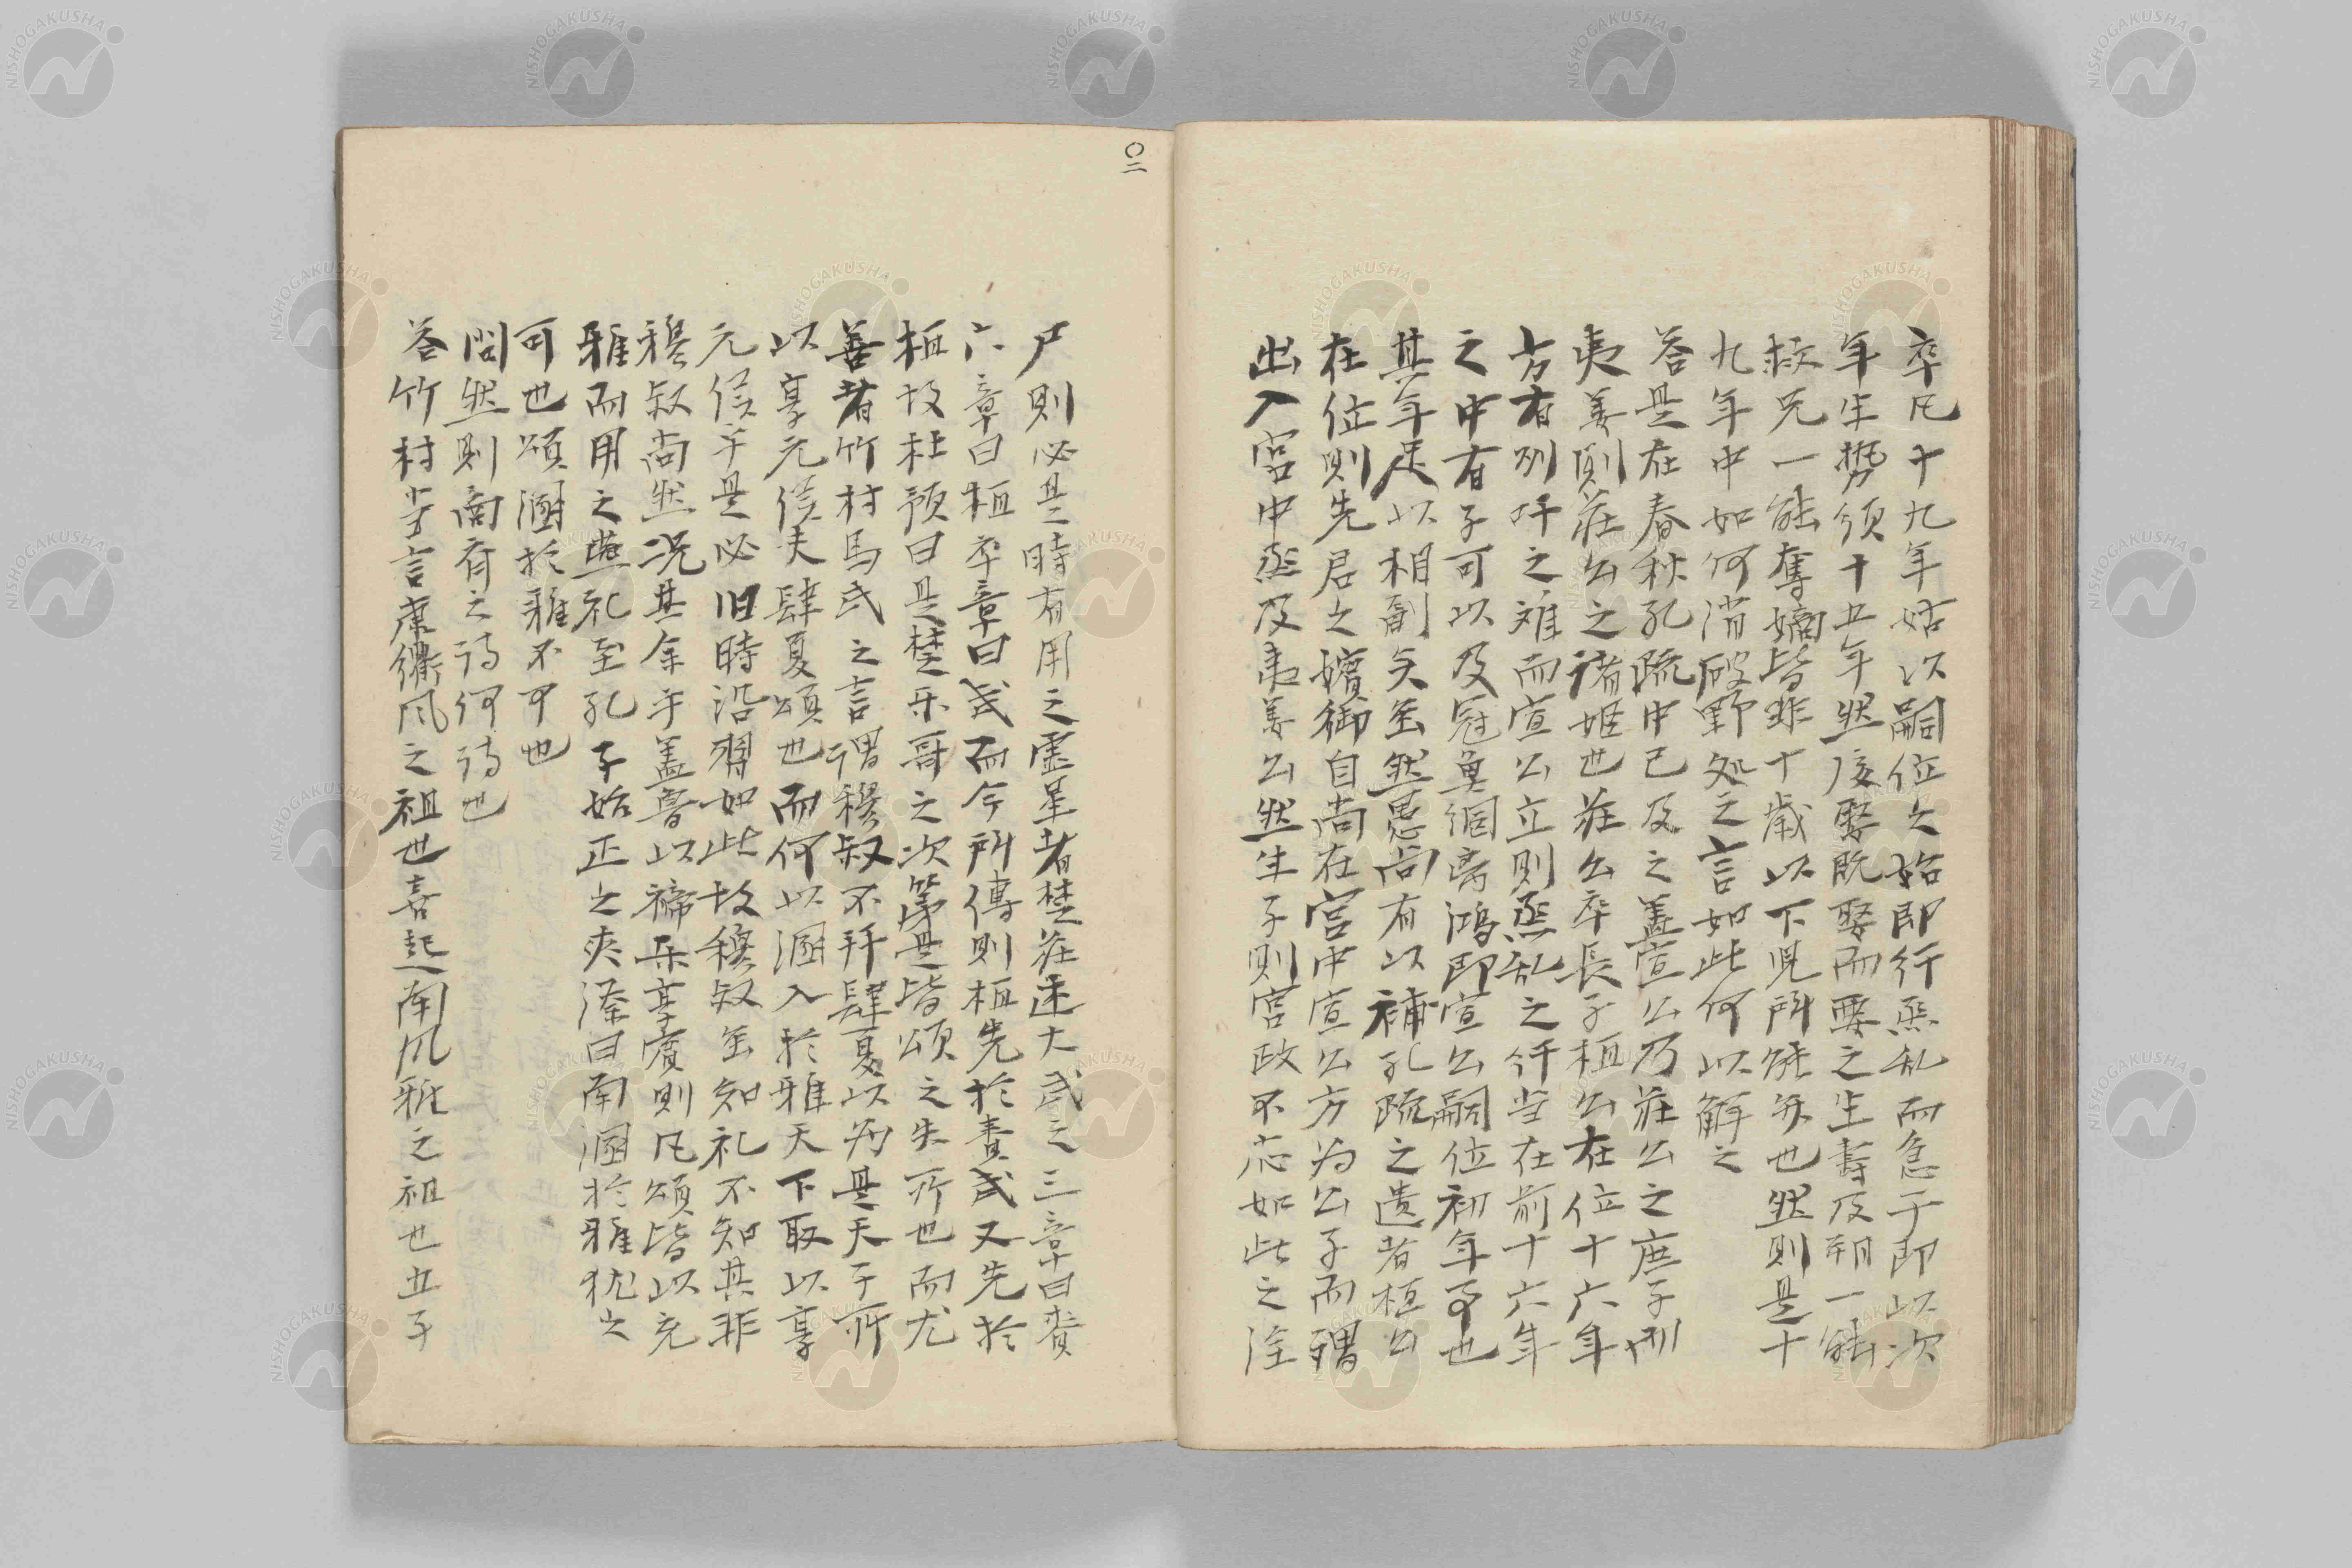 卒凡十九年姑以嗣位之始即行烝乱而急子即以次
年生勢須十五年然後娶既娶而要之生壽及朔一能
救兄一能奪嫡皆非十歳以下児所能为也然則是十
九年中如何消破野処之言如此何以解之
答是在春秋孔疏中已及之盖宣公乃莊公之庶子
夷姜則莊公之諸姫也莊公卒長子桓公在位十六年
方有州吁之难而宣公立則烝乱之行当在前十六年
之中有子可以及冠奠鴻离鴻即宣公嗣位初年事也
其年足以相副矣至然愚尚有以補孔疏之遺者桓公
在位則先君之嬪御自尚在宮中宣公方为公子而謂
出入宮中烝及夷姜公然生子則宮政不応如此之淫
尸則必是時有用之霊星者楚莊述大武之三章曰賚
六章曰桓卒章曰武而今所傳則桓先於賚武又先於
桓故杜預曰是楚乐哥之次第是皆頌之失所也而尤
善者竹村馬氏之言謂穆叔不拜肆夏以为是天子所
以享元侯夫肆夏頌也而何以溷入於雅天下取以享
元侯乎是必旧時沿習如此故穆叔至知礼不知其非
穆叔尚然况其余乎盖魯以禘乐享賓則凡頌皆以充
雅而用之燕礼至孔子始正之夾漈曰南溷於雅犹之
可也頌溷於雅不可也
問然則商有之詩何詩也
答竹村岁言康衢风之祖也喜起南风雅之祖也五子
〇二
NISHOGAKUSHA